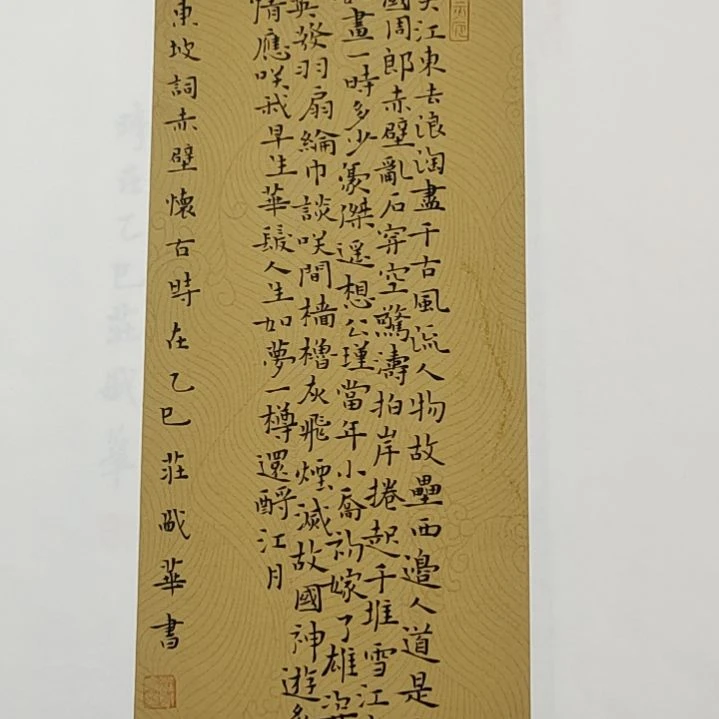 江東去浪淘盡千古風流人物故壘西邊人道是
國周郎赤壁亂石穿空驚濤拍岸捲起千堆雪江
畫一時多少豪傑遙想公瑾當年小喬初嫁了雄姿
英發羽扇綸巾談咲間檣櫓灰飛煙滅故國神遊
情應咲我早生華髮人生如夢一樽還酹江月
東坡詞赤壁懷古時在乙巳莊華書